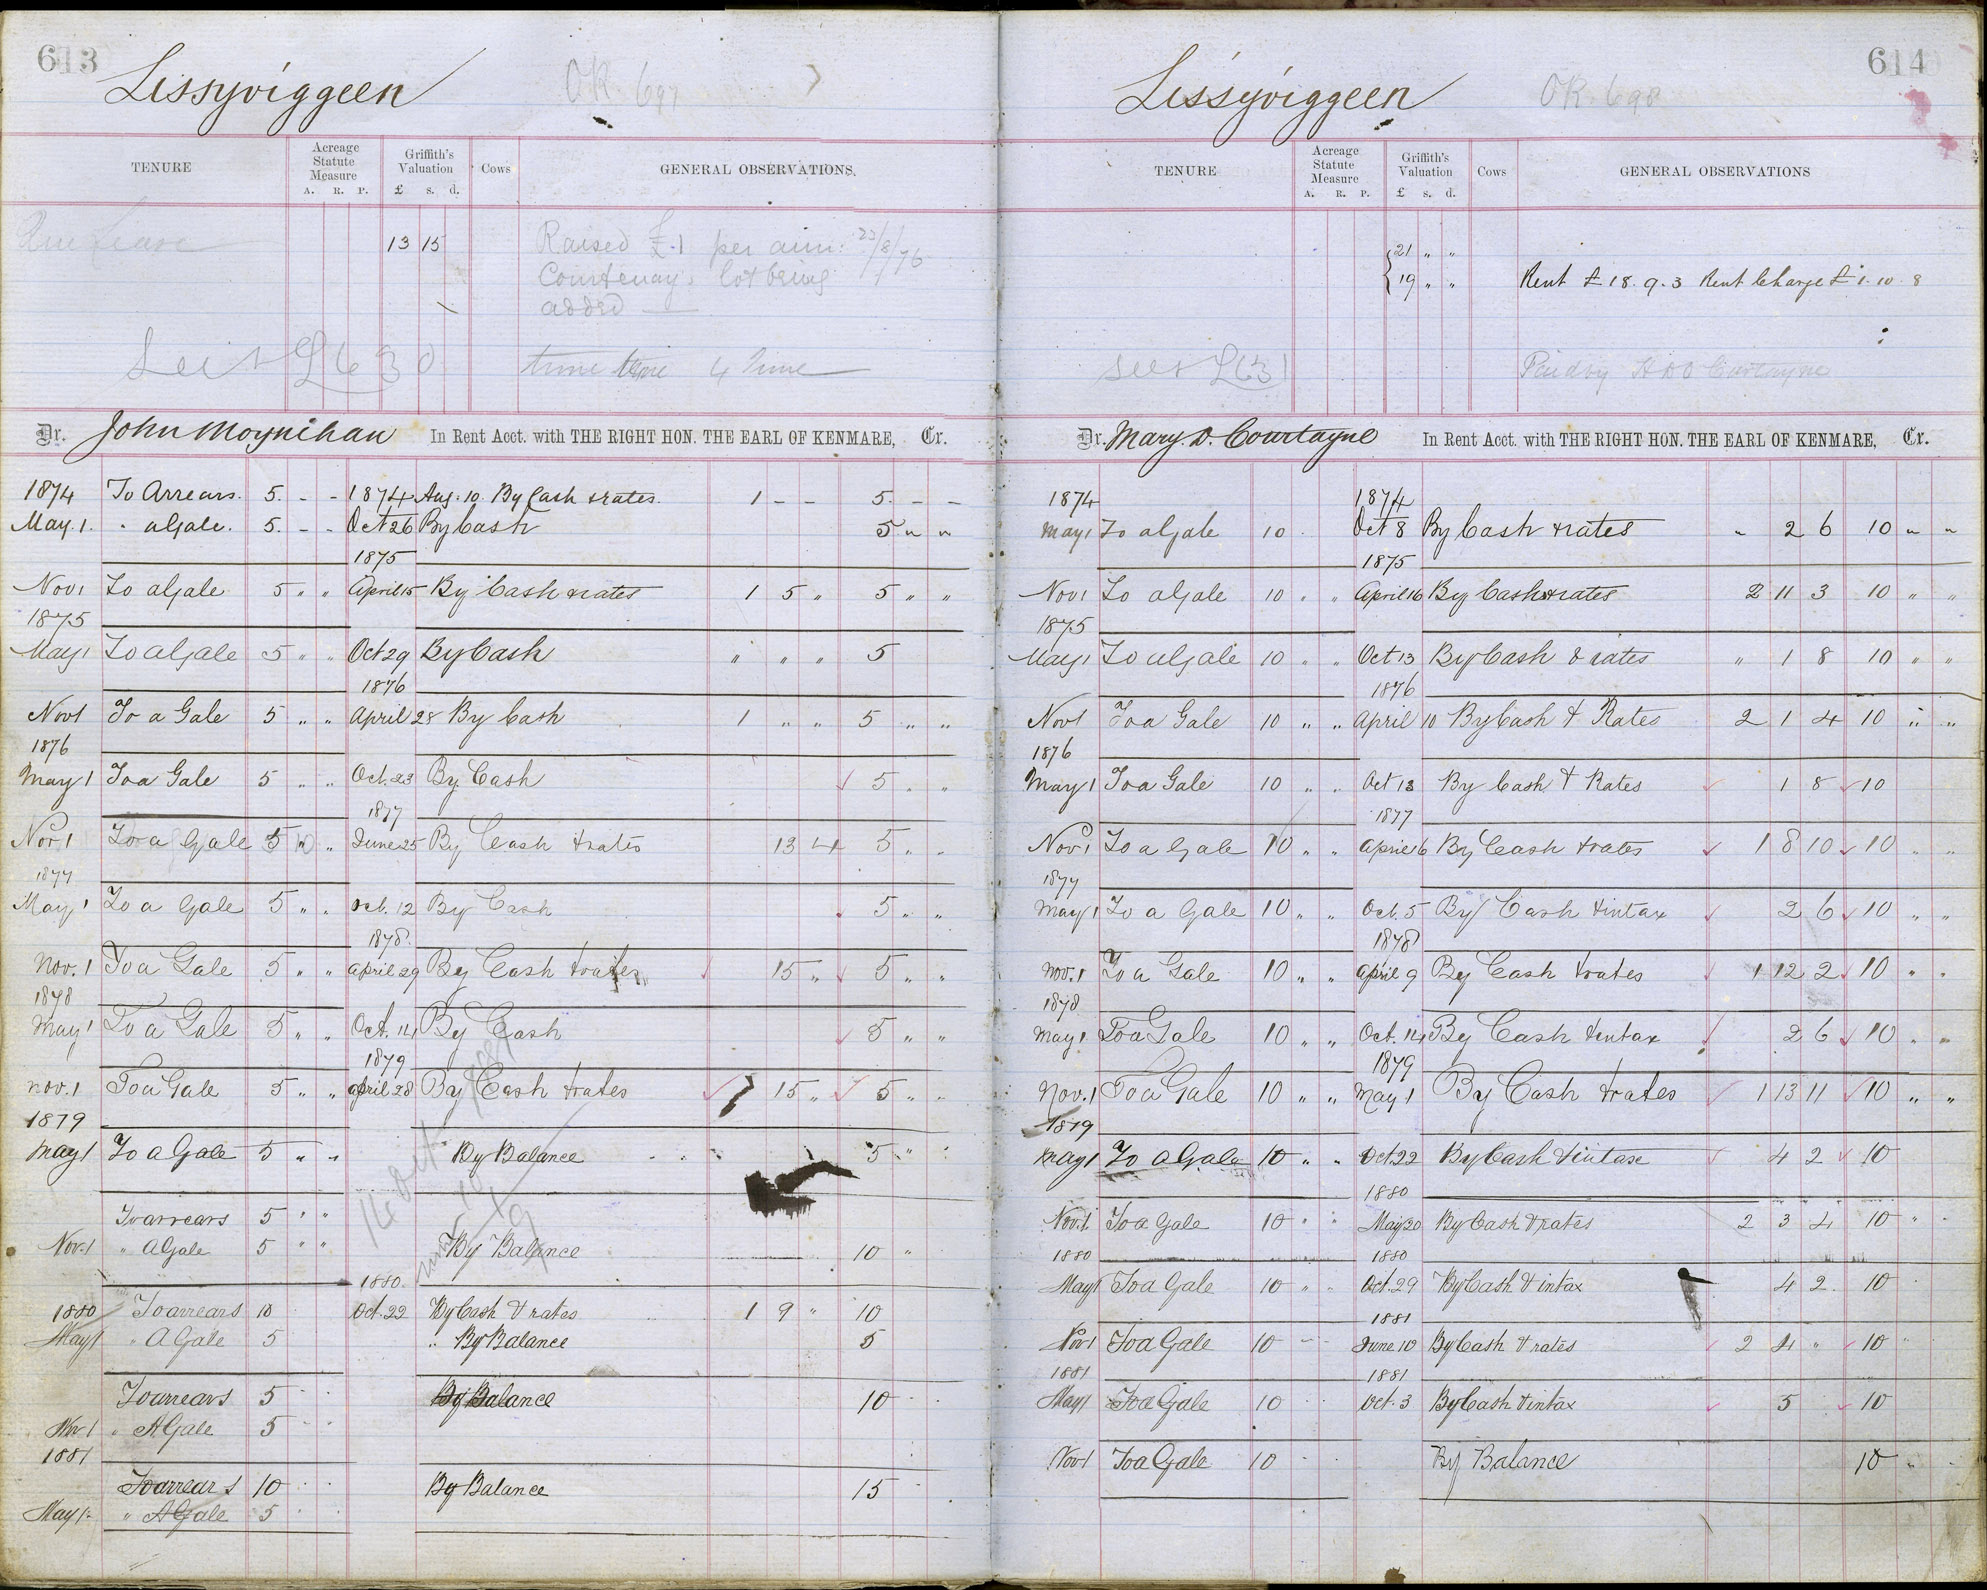 613
Lissyviggeen
OR 697
TENURE
Acreage Statute Measure
A. R. P.
Griffith's Valuation
£ s. d.
Cows
GENERAL OBSERVATIONS.
Lease
13 15
Raised £.1 per ann: 23/8/76
Courtenay's lot being
added
See L 630
Dr. John Moynihan In Rent Acct. with THE RIGHT HON. THE EARL OF KENMARE, Cr.
1874 To Arrears. 5. - - 1874 Aug. 10. By Cash & rates. 1 - - 5. - -
May. 1. " a Gale. 5. - - Oct 26 By Cash 5 " "
1875
Nov 1 To a Gale 5 " " April 15 By Cash & rates 1 5 " 5 " "
1875
May 1 To a Gale 5 " " Oct 29 By Cash " " " 5
1876
Nov 1 To a Gale 5 " " April 28 By Cash 1 " " 5 " "
1876
May 1 To a Gale 5 " " Oct. 23 By Cash 5 " "
1877
Nov. 1 To a Gale 5 10 " June 25 By Cash & rates 13 4 5 " "
1877
May 1 To a Gale 5 " " Oct. 12 By Cash 5 " "
1878
Nov. 1 To a Gale 5 " " April 29 By Cash & rates 15 " 5 " "
1878
May 1 To a Gale 5 " " Oct. 14 By Cash 5 " "
1879
Nov. 1 To a Gale 5 " " April 28 By Cash & rates 15 " 5 " "
1879
May 1 To a Gale 5 " " By Balance 5 " "
To arrears 5 " "
Nov. 1 " A Gale 5 " " By Balance 10 "
1880
1880 To arrears 10 Oct. 22 By Cash & rates 1 9 " 10
May 1 " A Gale 5 " By Balance 5
To arrears 5 By Balance 10
Nov 1 " A Gale 5
1881
To arrears 10 By Balance 15
May 1 " A Gale 5
614
Lissyviggeen
OR 698
TENURE
Acreage Statute Measure
A. R. P.
Griffith's Valuation
£ s. d.
Cows
GENERAL OBSERVATIONS
21 " "
19 " "
Rent £18. 9. 3 Rent Charge £1. 10. 8
See L 631
Paid by Courtayne
Dr. Mary D. Courtayne In Rent Acct. with THE RIGHT HON. THE EARL OF KENMARE, Cr.
1874 1874
May 1 To a Gale 10 Oct 8 By Cash & rates " 2 6 10 " "
1875
Nov 1 To a Gale 10 " " April 16 By Cash & rates 2 11 3 10 " "
1875
May 1 To a Gale 10 " " Oct 13 By Cash & rates " 1 8 10 " "
1876
Nov 1 To a Gale 10 " " April 10 By Cash & Rates 2 1 4 10 " "
1876
May 1 To a Gale 10 " " Oct 13 By Cash & Rates 1 8 10
1877
Nov 1 To a Gale 10 " " April 16 By Cash & rates 1 8 10 10 " "
1877
May 1 To a Gale 10 " " Oct. 5 By Cash & intax 2 6 10 " "
1878
Nov. 1 To a Gale 10 " " April 9 By Cash & rates 1 12 2 10 " "
1878
May 1 To a Gale 10 " " Oct. 14 By Cash & intax 2 6 10 " "
1879
Nov. 1 To a Gale 10 " " May 1 By Cash & rates 1 13 11 10 " "
1879
May 1 To a Gale 10 " " Oct 22 By Cash & intax 4 2 10
1880
Nov. 1 To a Gale 10 " " May 20 By Cash & rates 2 3 4 10 " "
1880 1880
May 1 To a Gale 10 " " Oct. 29 By Cash & intax 4 2 10
1881
Nov 1 To a Gale 10 June 10 By Cash & rates 2 4 " 10
1881 1881
May 1 To a Gale 10 Oct. 3 By Cash & intax 5 10
Nov 1 To a Gale 10 By Balance 10 "